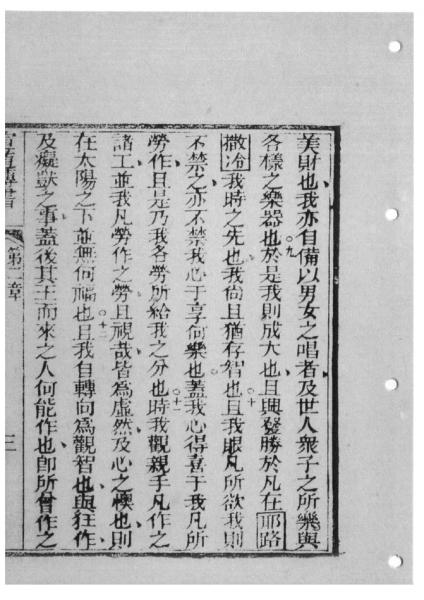 美財也我亦自備以男女之唱者及世人衆子之所樂與
各樣之樂器也○九於是我則成大也且興發勝於凡在耶路
撒冷我時之先也我尙且猶存智也○十且我眼凡所欲我則
不禁之亦不禁我心于享何樂也蓋我心得喜于我凡所
勞作且是乃我各勞所給我之分也○十一時我觀親手凡作之
諸工並我凡勞作之勞且視哉皆爲虛然及心之懊也則
在太陽之下並無何福也○十二且我自轉向爲觀智也與狂作
及癡獃之事蓋後其王而來之人何能作也卽所曾作之
第二章
三